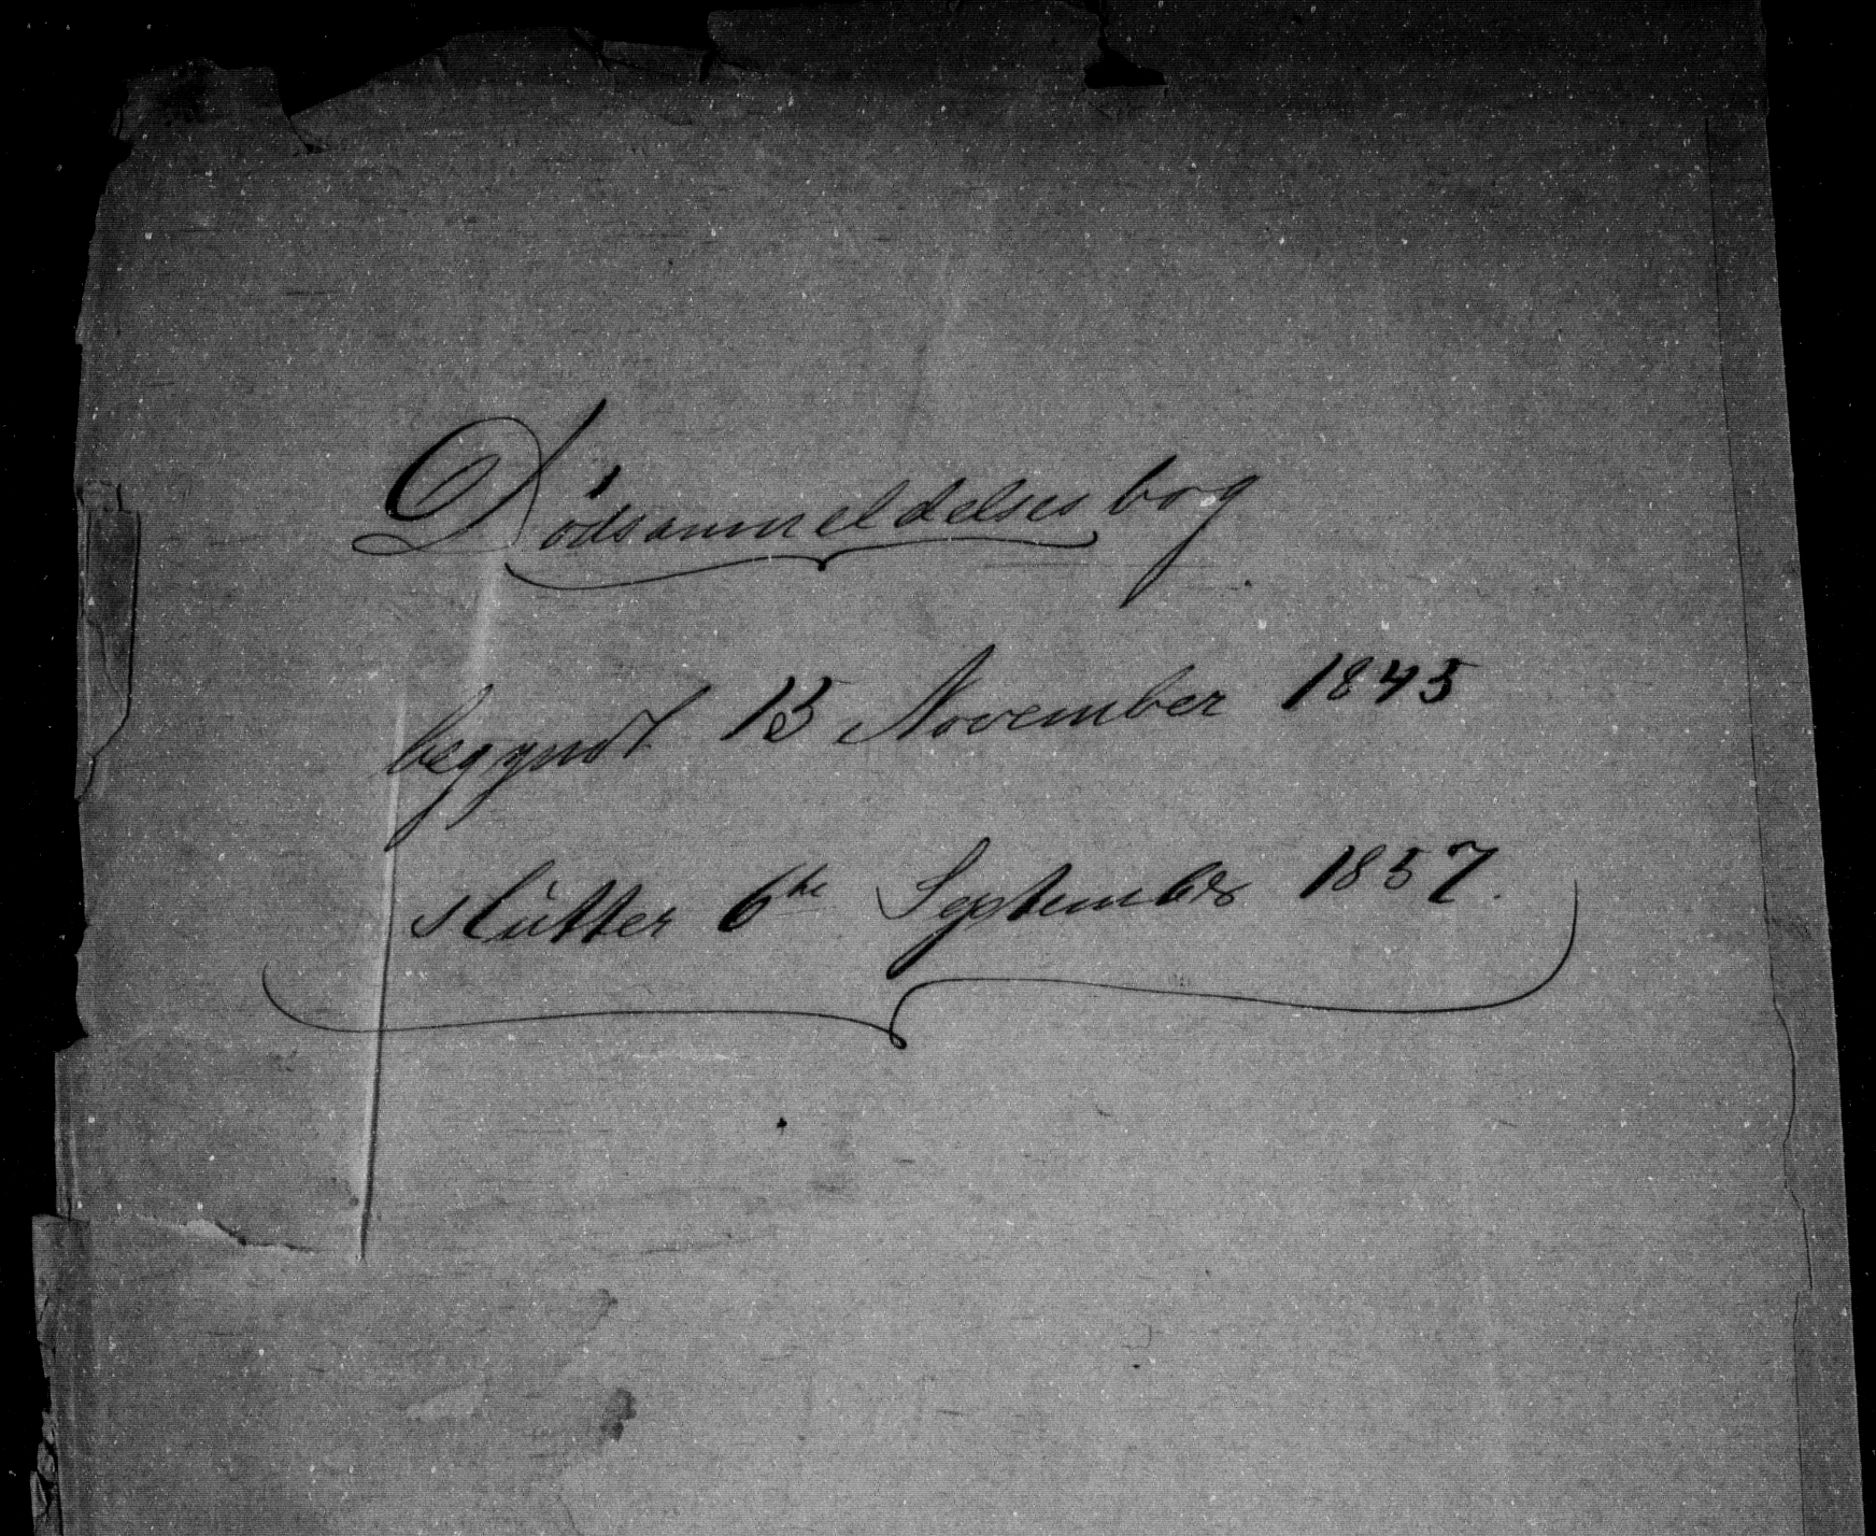 Dódsanmeldelsesbog
begyndt 13 November 1845
slutter 6te September 1857.